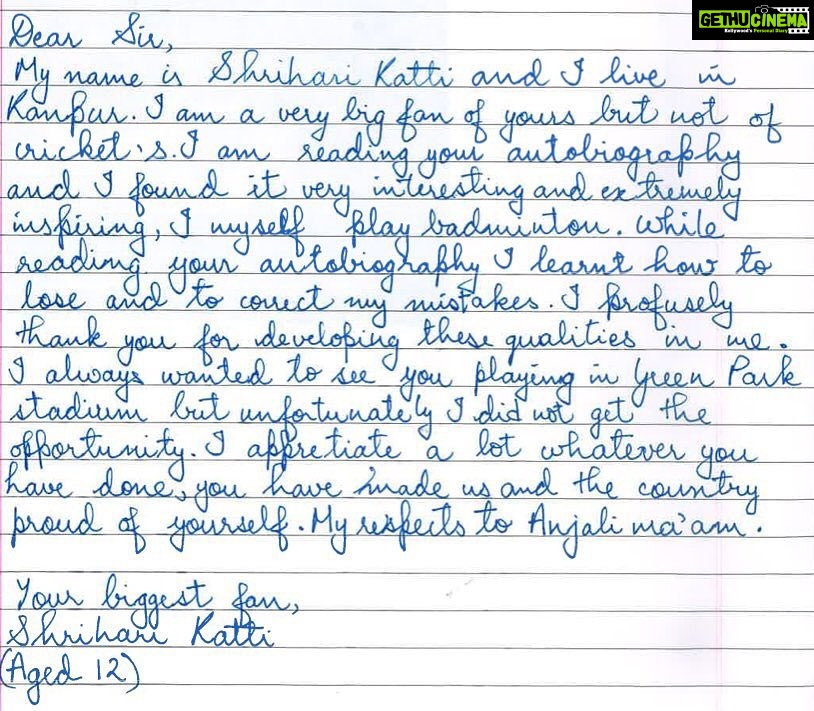 GETHUCINEMA
Kollywood's Personal Diary
Dear Sir,
My name is Shrihari Katti and I live in
Kanpur. I am a very big fan of yours but not of
cricket's. I am reading your autobiography
and I found it very interesting and extremely
inspiring, I myself play badminton. While
reading your autobiography I learnt how to
lose and to correct my mistakes. I profusely
thank you for developing these qualities in me.
I always wanted to see you playing in Green Park
stadium but unfortunately I did not get the
opportunity. I appretiate a lot whatever you
have done, you have made us and the country
proud of yourself. My respects to Anjali ma'am.
Your biggest fan,
Shrihari Katti
(Aged 12)